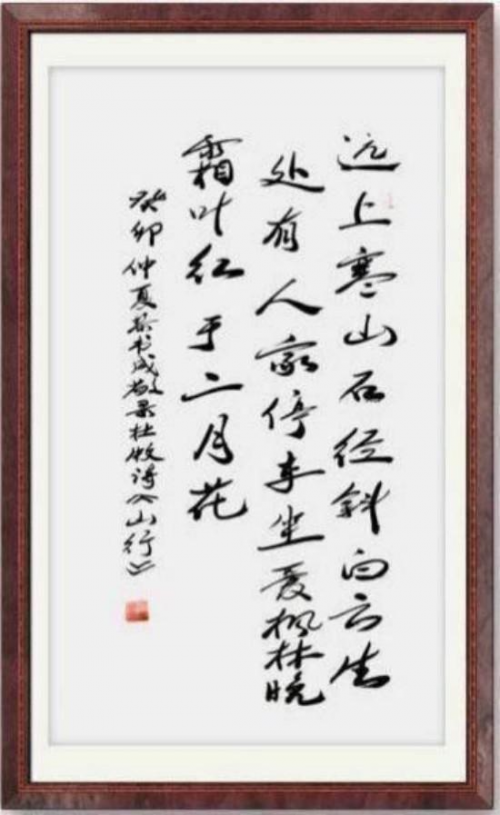 远上寒山石径斜白云生
处有人家停车坐爱枫林晚
霜叶红于二月花
癸卯仲夏 书成敬录杜牧诗《山行》